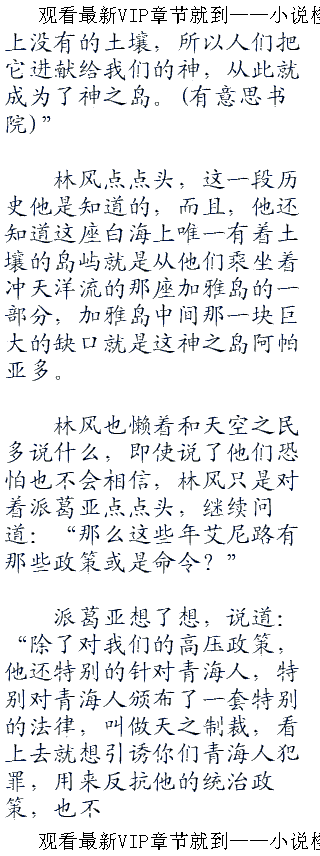 观看最新VIP章节就到——小说
上没有的土壤，所以人们把
它进献给我们的神，从此就
成为了神之岛。(有意思书
院)”
林风点点头，这一段历
史他是知道的，而且，他还
知道这座白海上唯一有着土
壤的岛屿就是从他们乘坐着
冲天洋流的那座加雅岛的一
部分，加雅岛中间那一块巨
大的缺口就是这神之岛阿帕
亚多。
林风也懒着和天空之民
多说什么，即使说了他们恐
怕也不会相信，林风只是对
着派葛亚点点头，继续问
道：“那么这些年艾尼路有
那些政策或是命令？”
派葛亚想了想，说道：
“除了对我们的高压政策，
他还特别的针对青海人，特
别对青海人颁布了一套特别
的法律，叫做天之制裁，看
上去就想引诱你们青海人犯
罪，用来反抗他的统治政
策，也不
观看最新VIP章节就到——小说